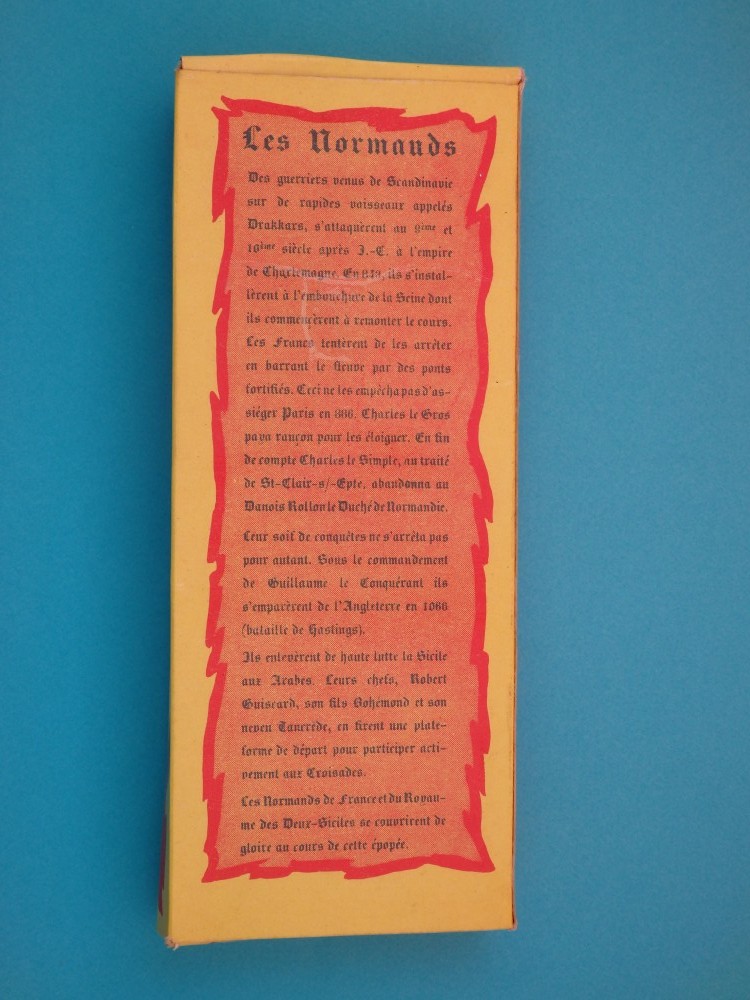 Les Normands
Des guerriers venus de Scandinavie
sur de rapides vaisseaux appelés
Drakkars, s'attaquèrent au 9ème et
10ème siècle après J.-C. à l'empire
de Charlemagne. En 840, ils s'instal-
lèrent à l'embouchure de la Seine dont
ils commencèrent à remonter le cours.
Les Francs tentèrent de les arrêter
en barrant le fleuve par des ponts
fortifiés. Ceci ne les empêcha pas d'as-
siéger Paris en 886. Charles le Gros
paya rançon pour les éloigner. En fin
de compte Charles le Simple, au traité
de St-Clair-s/-Epte, abandonna au
Danois Rollon le Duché de Normandie.
Leur soif de conquêtes ne s'arrêta pas
pour autant. Sous le commandement
de Guillaume le Conquérant ils
s'emparèrent de l'Angleterre en 1066
(bataille de Hastings).
Ils enlevèrent de haute lutte la Sicile
aux Arabes. Leurs chefs, Robert
Guiscard, son fils Bohémond et son
neveu Tancrède, en firent une plate-
forme de départ pour participer acti-
vement aux Croisades.
Les Normands de France et du Royau-
me des Deux-Siciles se couvrirent de
gloire au cours de cette épopée.